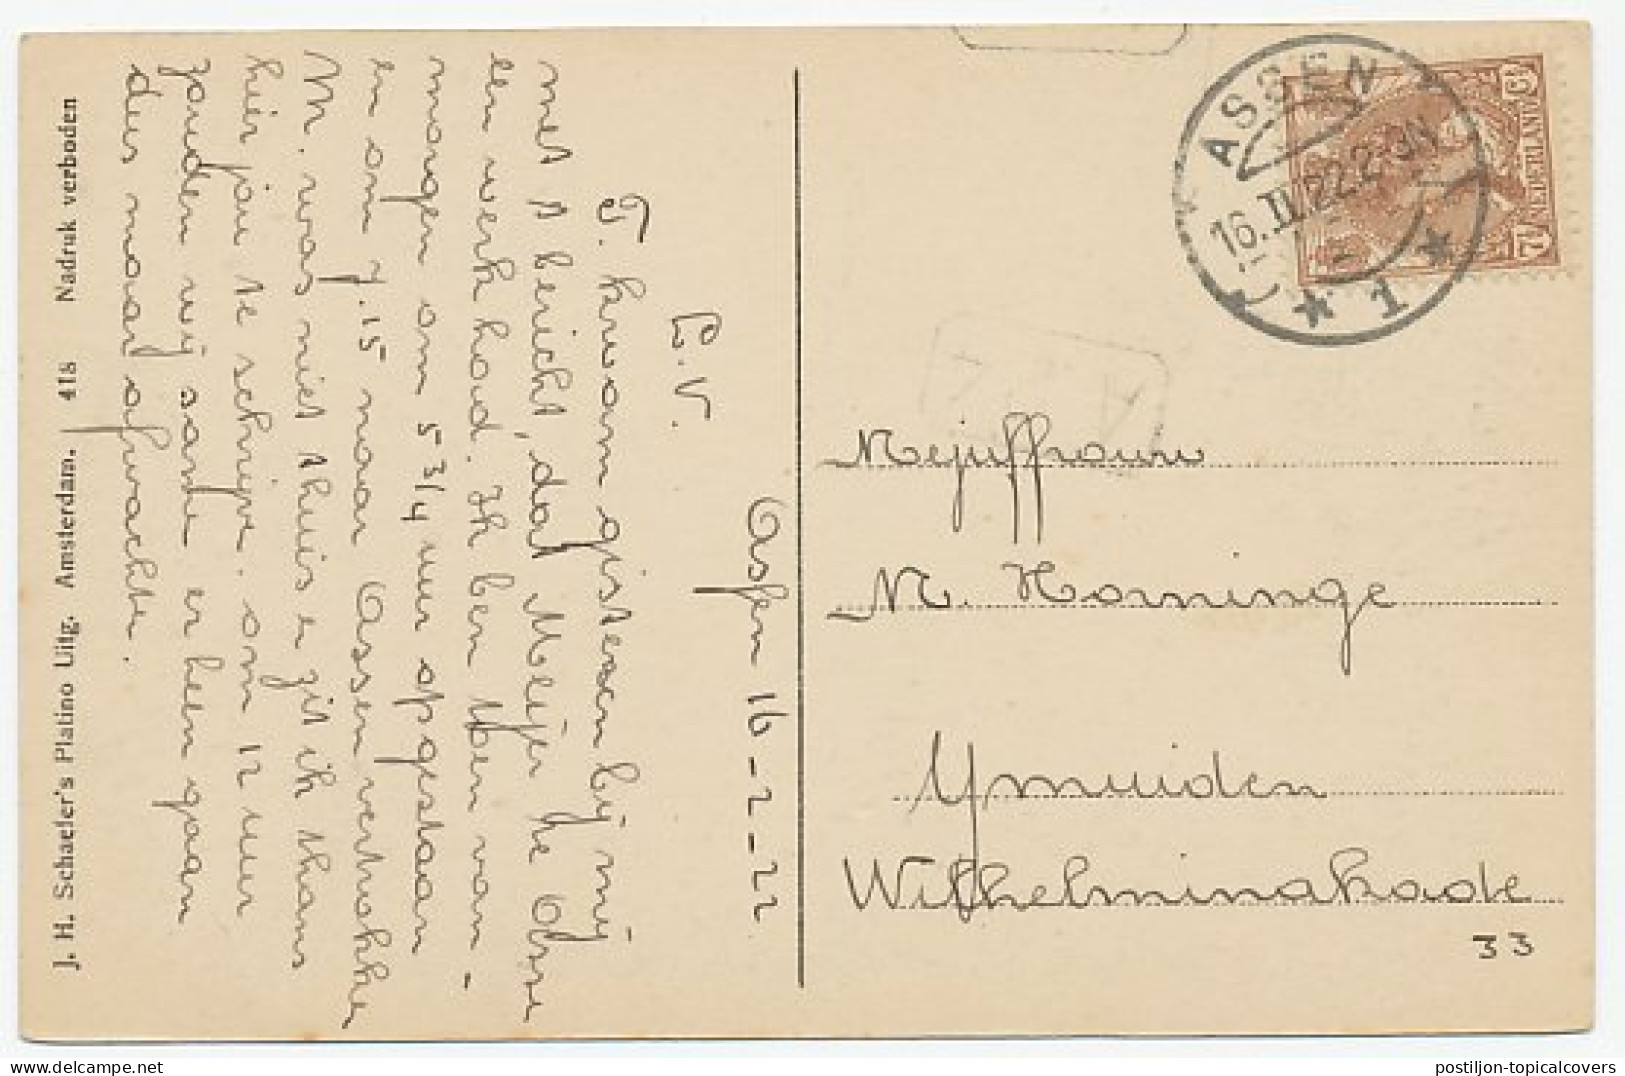 Assen 16-2-22
L.V.
T. kwam gisteren bij mij
met 't bericht, dat Meijer te Assen
een werk had. Ik ben toen van-
morgen om 5 3/4 uur opgestaan
en om 7.15 naar Assen vertrokken
M. was niet thuis en zit ik thans
hier jou te schrijven. om 12 uur
zouden wij samen er heen gaan
dus maar afwachten.
J. H. Schaefer's Platino Uitg. Amsterdam. 418 Nadruk verboden
ASSEN
16.II.22.2-3N
1
NEDERLAND
7½
Mejuffrouw
M. Honinge
Ymuiden
Wilhelminakade
33
postiljon-topicalcovers